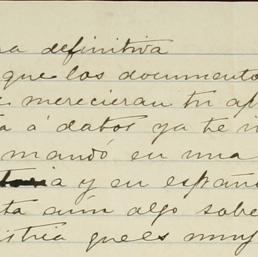 na definitiva
que los documento
merecieran tu ap
a á datos ya te
mandó en una
toria y en españ
ta aún algo sobre
stria que es muy